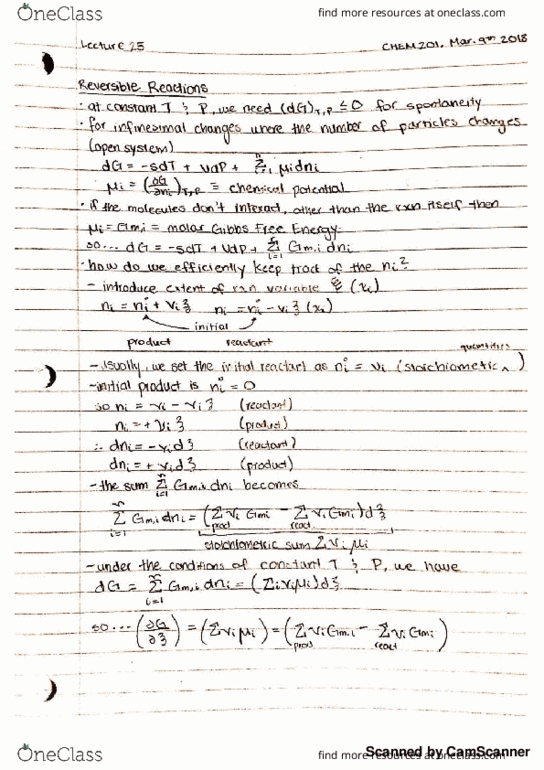 OneClass find more resources at oneclass.com
Lecture 25 CHEM 201, Mar. 9th 2018
Reversible Reactions
· at constant T & P, we need (dG)T,P ≤ 0 for spontaneity
· for infinesimal changes where the number of particles changes
(open system)
dG = -SdT + VdP + Σ μi dni
μi = (∂G/∂ni)T,P = chemical potential
· if the molecules don't interact, other than the rxn itself then
μi = Gm,i = molar Gibbs Free Energy.
so... dG = -SdT + VdP + Σ Gm,i dni
i=1
· how do we efficiently keep tract of the ni?
- introduce extent of rxn variable ξ (xi)
ni = ni° + νiξ ni = ni° - νiξ (xi)
initial
product reactant
quantities
- usually, we set the initial reactant as ni° = νi (stoichiometic ^ )
- initial product is ni° = 0
so ni = νi - νiξ (reactant)
ni = + νiξ (product)
∴ dni = -νidξ (reactant)
dni = + νidξ (product)
- the sum Σ Gm,i dni becomes
i=1
Σ Gm,i dni = (Σ νi Gm,i - Σ νi Gm,i)dξ
i=1 prod react
stoichiometric sum Σνiμi
- under the conditions of constant T & P, we have
dG = Σ Gm,i dni = (Σiνiμi)dξ
i=1
so... (∂G/∂ξ) = (Σνiμi) = (Σ νi Gm,i - Σ νi Gm,i)
prod react
OneClass find more resources at oneclass.com
Scanned by CamScanner